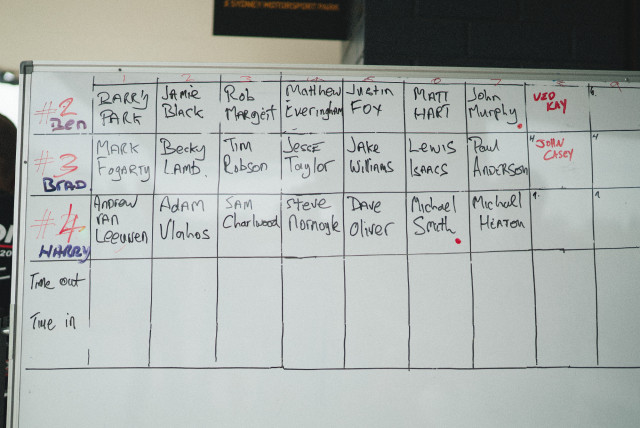 S SYDNEY MOTORSPORT PARK
1 2 3 7 9
#2 Ben
BARRY PARK
Jamie Black
Rob Margeit
Matthew Everingham
Justin FOX
MATT HART
John Murphy.
KAY
#3 BRAD
MARK FOGARTY
Becky LAMB.
TIM Robson
JESSE Taylor
JAKE WILLIAMS
LEWIS ISAACS
Paul ANDERSON
JOHN CASEY
#4 HARRY
ANDREW VAN LEEUWEN
ADAM Vlahos
SAM Charlwood
Steve
DAVE OLIVER
Michael Smith.
Michael HEATON
Time out
Time in